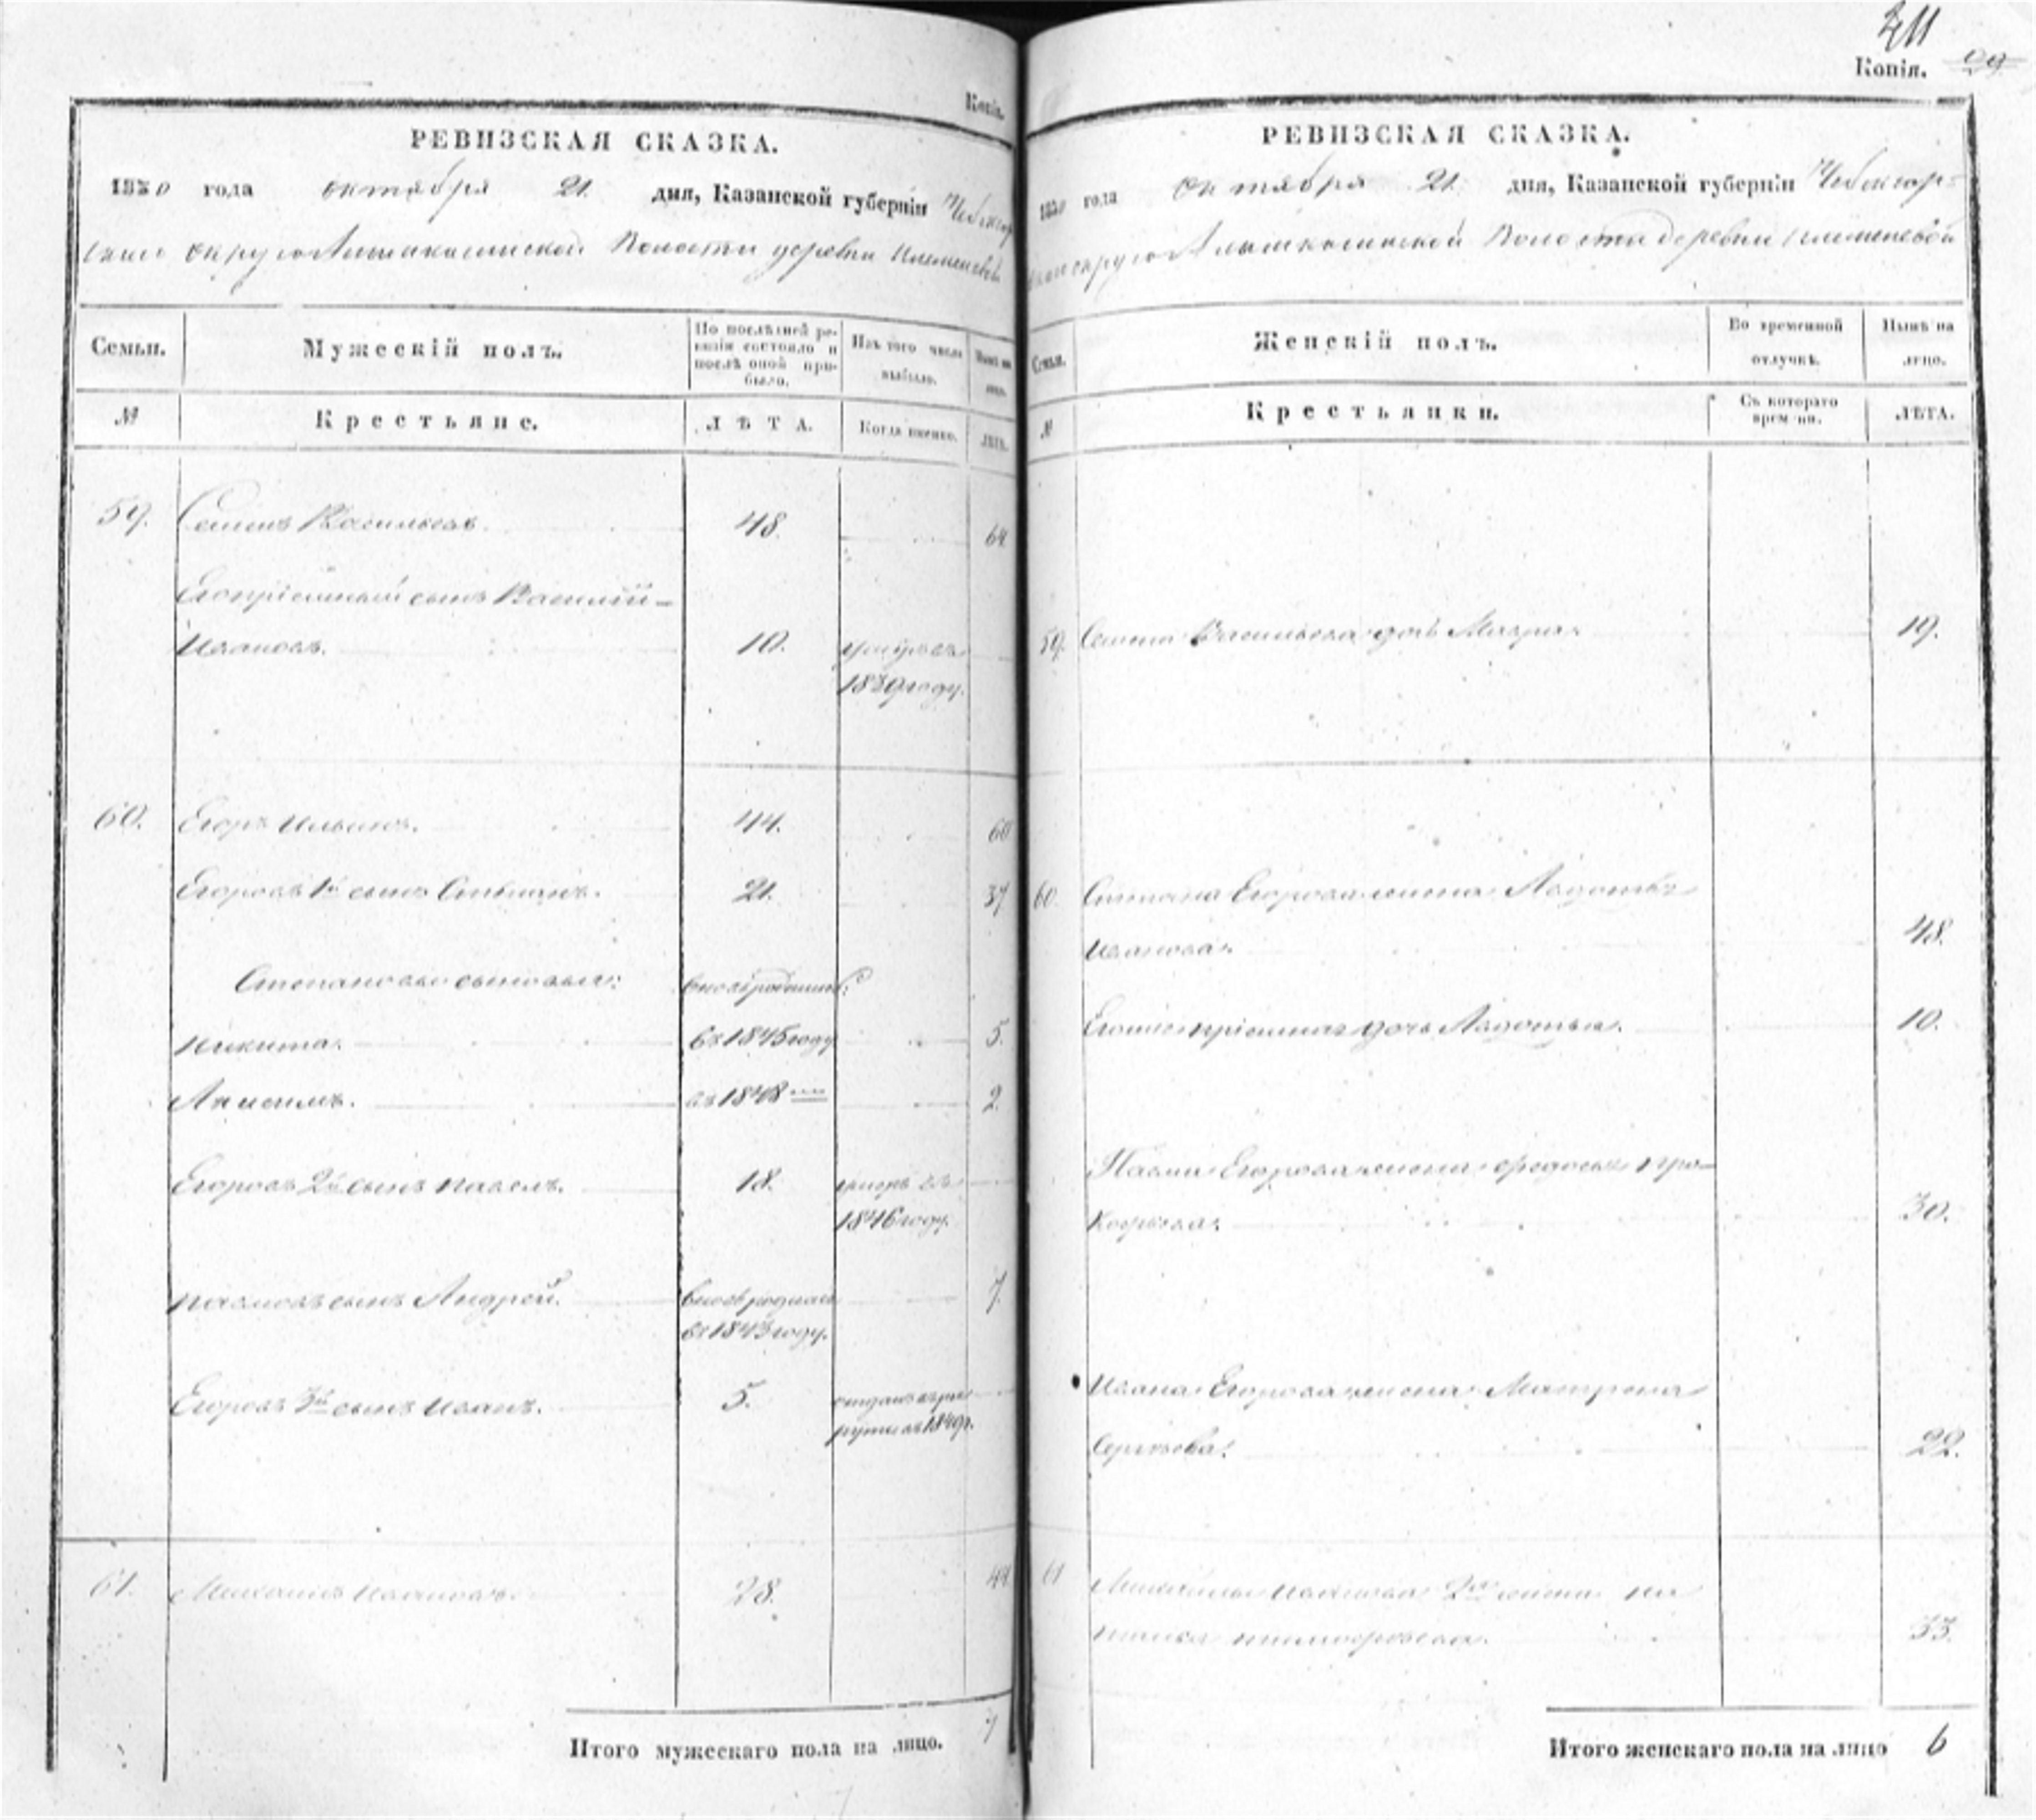 Копія.
РЕВИЗСКАЯ СКАЗКА.
1850 года октября 21. дня, Казанской губерніи Чебоксар
скаго округа волости деревни
Семьи.
Мужескій полъ.
По послѣдней ре-
визіи состояло и
послѣ оной при-
было.
Изъ того числа
выбыло.
Нынѣ на
лицо.
№
Крестьяне.
ЛѢТА.
Когда именно.
ЛѢТА.
59. Семенъ Васильевъ. 48. 64
Его пріемный сынъ Василій
Ивановъ. 10. умеръ въ
1839 году.
60. Егоръ Ильинъ. 44. 60
Егоровъ 1й сынъ Степанъ. 21. 37
Степановы сыновья: вновь рожденны:
Никита. въ 1845 году 5.
Анисимъ. въ 1848 2.
Егоровъ 2й сынъ Павелъ. 18. умеръ въ
1846 году.
Павловъ сынъ Андрей. вновь родился 7.
въ 1843 году.
Егоровъ 3й сынъ Иванъ. 5. отданъ въ рек
руты въ 1849 г.
61. Михаилъ Ивановъ. 28. 44
Итого мужескаго пола на лицо. 7
411
Копія. 99
РЕВИЗСКАЯ СКАЗКА.
1850 года октября 21. дня, Казанской губерніи Чебоксар-
скаго округа волости деревни
Семьи.
Женскій полъ.
Во временной
отлучкѣ.
Нынѣ на
лицо.
№
Крестьянки.
Съ котораго
времени.
ЛѢТА.
59. Семена Васильева дочь Мавра. 19.
60. Степана Егорова жена Авдотья
Иванова. 48.
Его же пріемная дочь Авдотья. 10.
Павла Егорова жена Федосья Про-
кофьева. 30.
Ивана Егорова жена Матрена
Сергѣева. 22.
61 Михайлы Иванова 2я жена На
талья Тимофеева. 33.
Итого женскаго пола на лицо 6